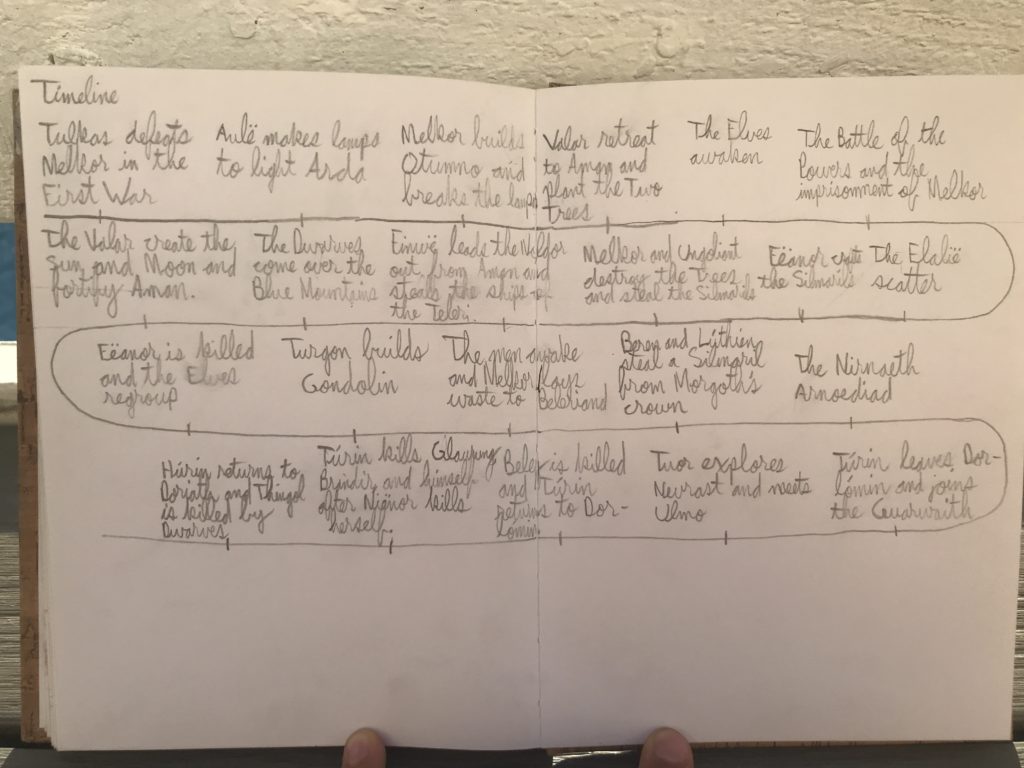 Timeline
Tulkas defeats
Melkor in the
First War
Aulë makes lamps
to light Arda
Melkor builds
Otumno and
breaks the lamps
Valar retreat
to Aman and
plant the Two
Trees
The Elves
awaken
The Battle of the
Powers and the
imprisonment of Melkor
The Valar create the
Sun and Moon and
fortify Aman.
The Dwarves
come over the
Blue Mountains
leads the Noldor
out from Aman and
steals the ships of
the Teleri.
Melkor and Ungoliant
destroy the Trees
and steal the Silmarils
Fëanor
the Silmarils
The Elalië
scatter
Fëanor is killed
and the Elves
regroup
Turgon builds
Gondolin
The men awake
and Melkor lays
waste to Beleriand
Beren and Lúthien
steal a Silmaril
from Morgoth's
crown
The Nirnaeth
Arnoediad
Húrin returns to
Doriath and Thingol
is killed by
Dwarves
Túrin kills Glaurung
Brandir and himself
after Niënor kills
herself.
Beleg is killed
and Túrin
returns to Dor-
lómin
Tuor explores
Nevrast and meets
Ulmo
Túrin leaves Dor-
lómin and joins
the Guarwaith